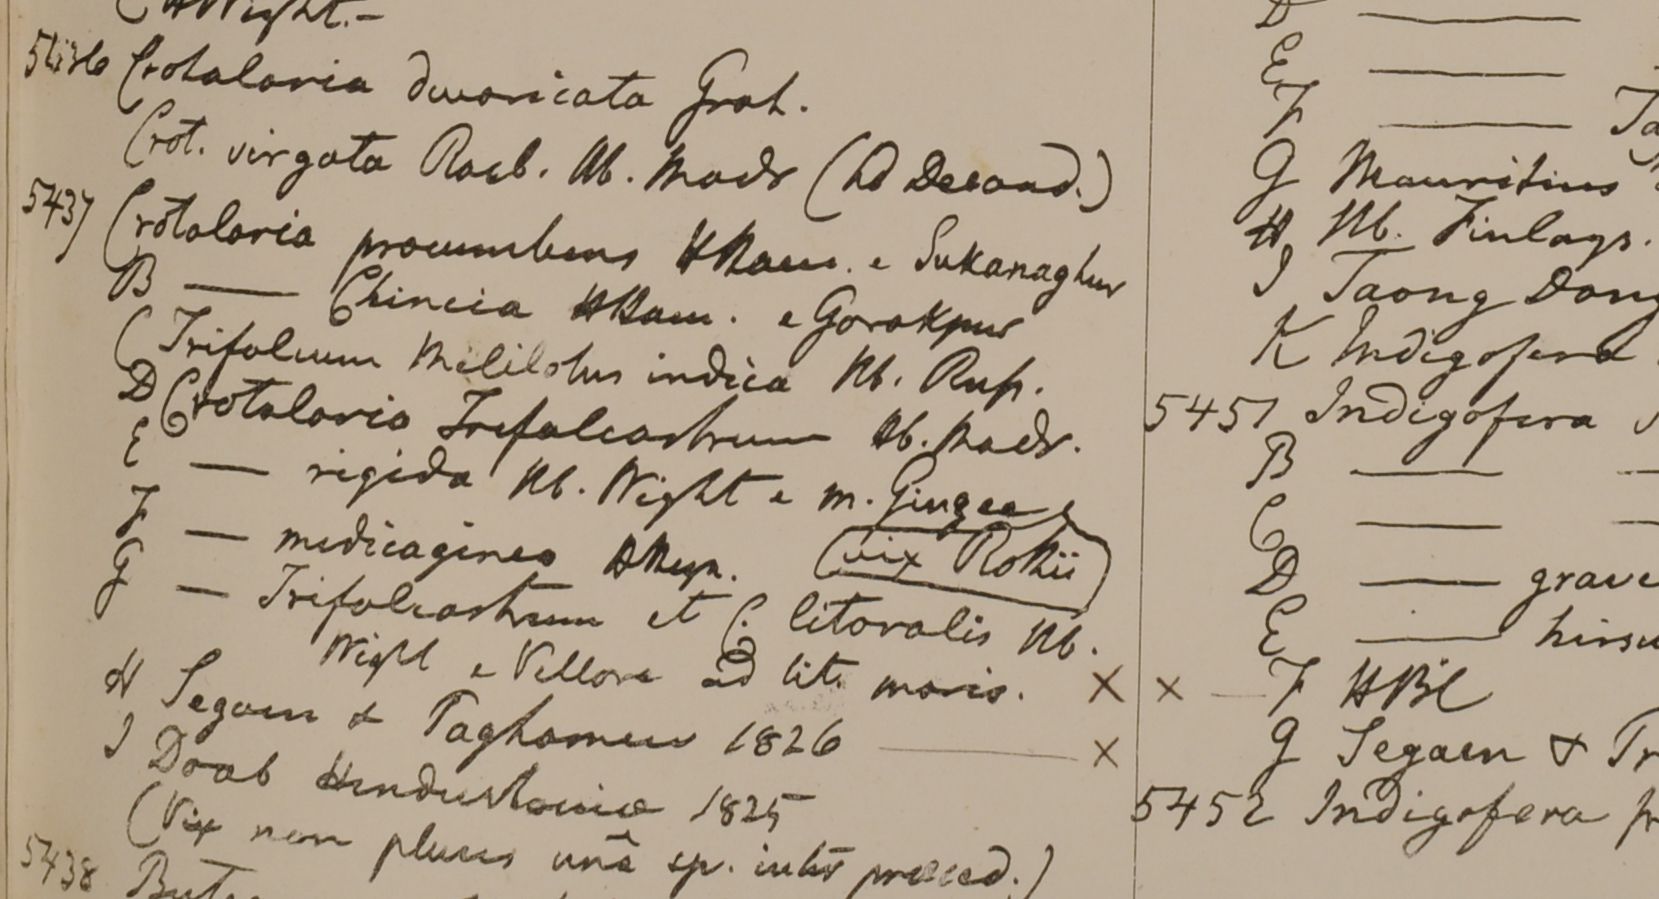 Wight.—
5436 Crotalaria divaricata Grah.
Crot. virgata Roxb. Hb. Madr (
5437 Crotalaria procumbens HHam. e Sukanaghur
B —— Chincia HHam. e Gorakpur
C Trifolium Melilotus indica Hb. Rus.
D Crotalaria Trifoliastrum Hb. Madr.
E — rigida Hb. Wight e m. Gingee
F — medicaginea (vix Rothii)
G — Trifoliastrum et C. litoralis Hb.
Wight e Vellore ad lit. maris. ×
H Segaen & 1826 —— ×
I Doab Hindustaniae 1825
(Vix non plures unâ sp. inter præced.)
5438
D ——
E ——
F ——
G Mauritius
H Hb. Finlays.
I Taong Dong
K Indigofera
5451 Indigofera
B ——
C ——
D ——
E ——
× — F HBC
G Segaen &
5452 Indigofera